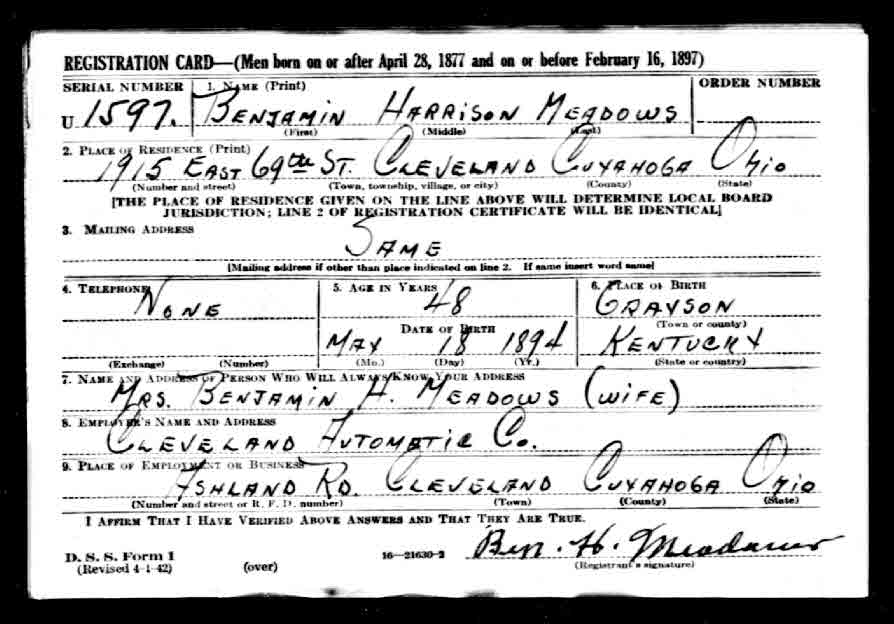 REGISTRATION CARD—(Men born on or after April 28, 1877 and on or before February 16, 1897)
SERIAL NUMBER 1. NAME (Print) ORDER NUMBER
U 1597. BENJAMIN HARRISON MEADOWS
(First) (Middle) (Last)
2. PLACE OF RESIDENCE (Print)
1915 EAST 69th ST. CLEVELAND CUYAHOGA OHIO
(Number and street) (Town, township, village, or city) (County) (State)
[THE PLACE OF RESIDENCE GIVEN ON THE LINE ABOVE WILL DETERMINE LOCAL BOARD
JURISDICTION; LINE 2 OF REGISTRATION CERTIFICATE WILL BE IDENTICAL]
3. MAILING ADDRESS
SAME
[Mailing address if other than place indicated on line 2. If same insert word same]
4. TELEPHONE 5. AGE IN YEARS 6. PLACE OF BIRTH
NONE 48 GRAYSON
(Town or county)
DATE OF BIRTH
MAY 18 1894 KENTUCKY
(Exchange) (Number) (Mo.) (Day) (Yr.) (State or country)
7. NAME AND ADDRESS OF PERSON WHO WILL ALWAYS KNOW YOUR ADDRESS
MRS. BENJAMIN H. MEADOWS (WIFE)
8. EMPLOYER'S NAME AND ADDRESS
CLEVELAND AUTOMATIC CO.
9. PLACE OF EMPLOYMENT OR BUSINESS
ASHLAND RD. CLEVELAND CUYAHOGA OHIO
(Number and street or R. F. D. number) (Town) (County) (State)
I AFFIRM THAT I HAVE VERIFIED ABOVE ANSWERS AND THAT THEY ARE TRUE.
Ben. H. Meadows
D. S. S. Form 1 16—21630-2
(Revised 4-1-42) (over) (Registrant's signature)